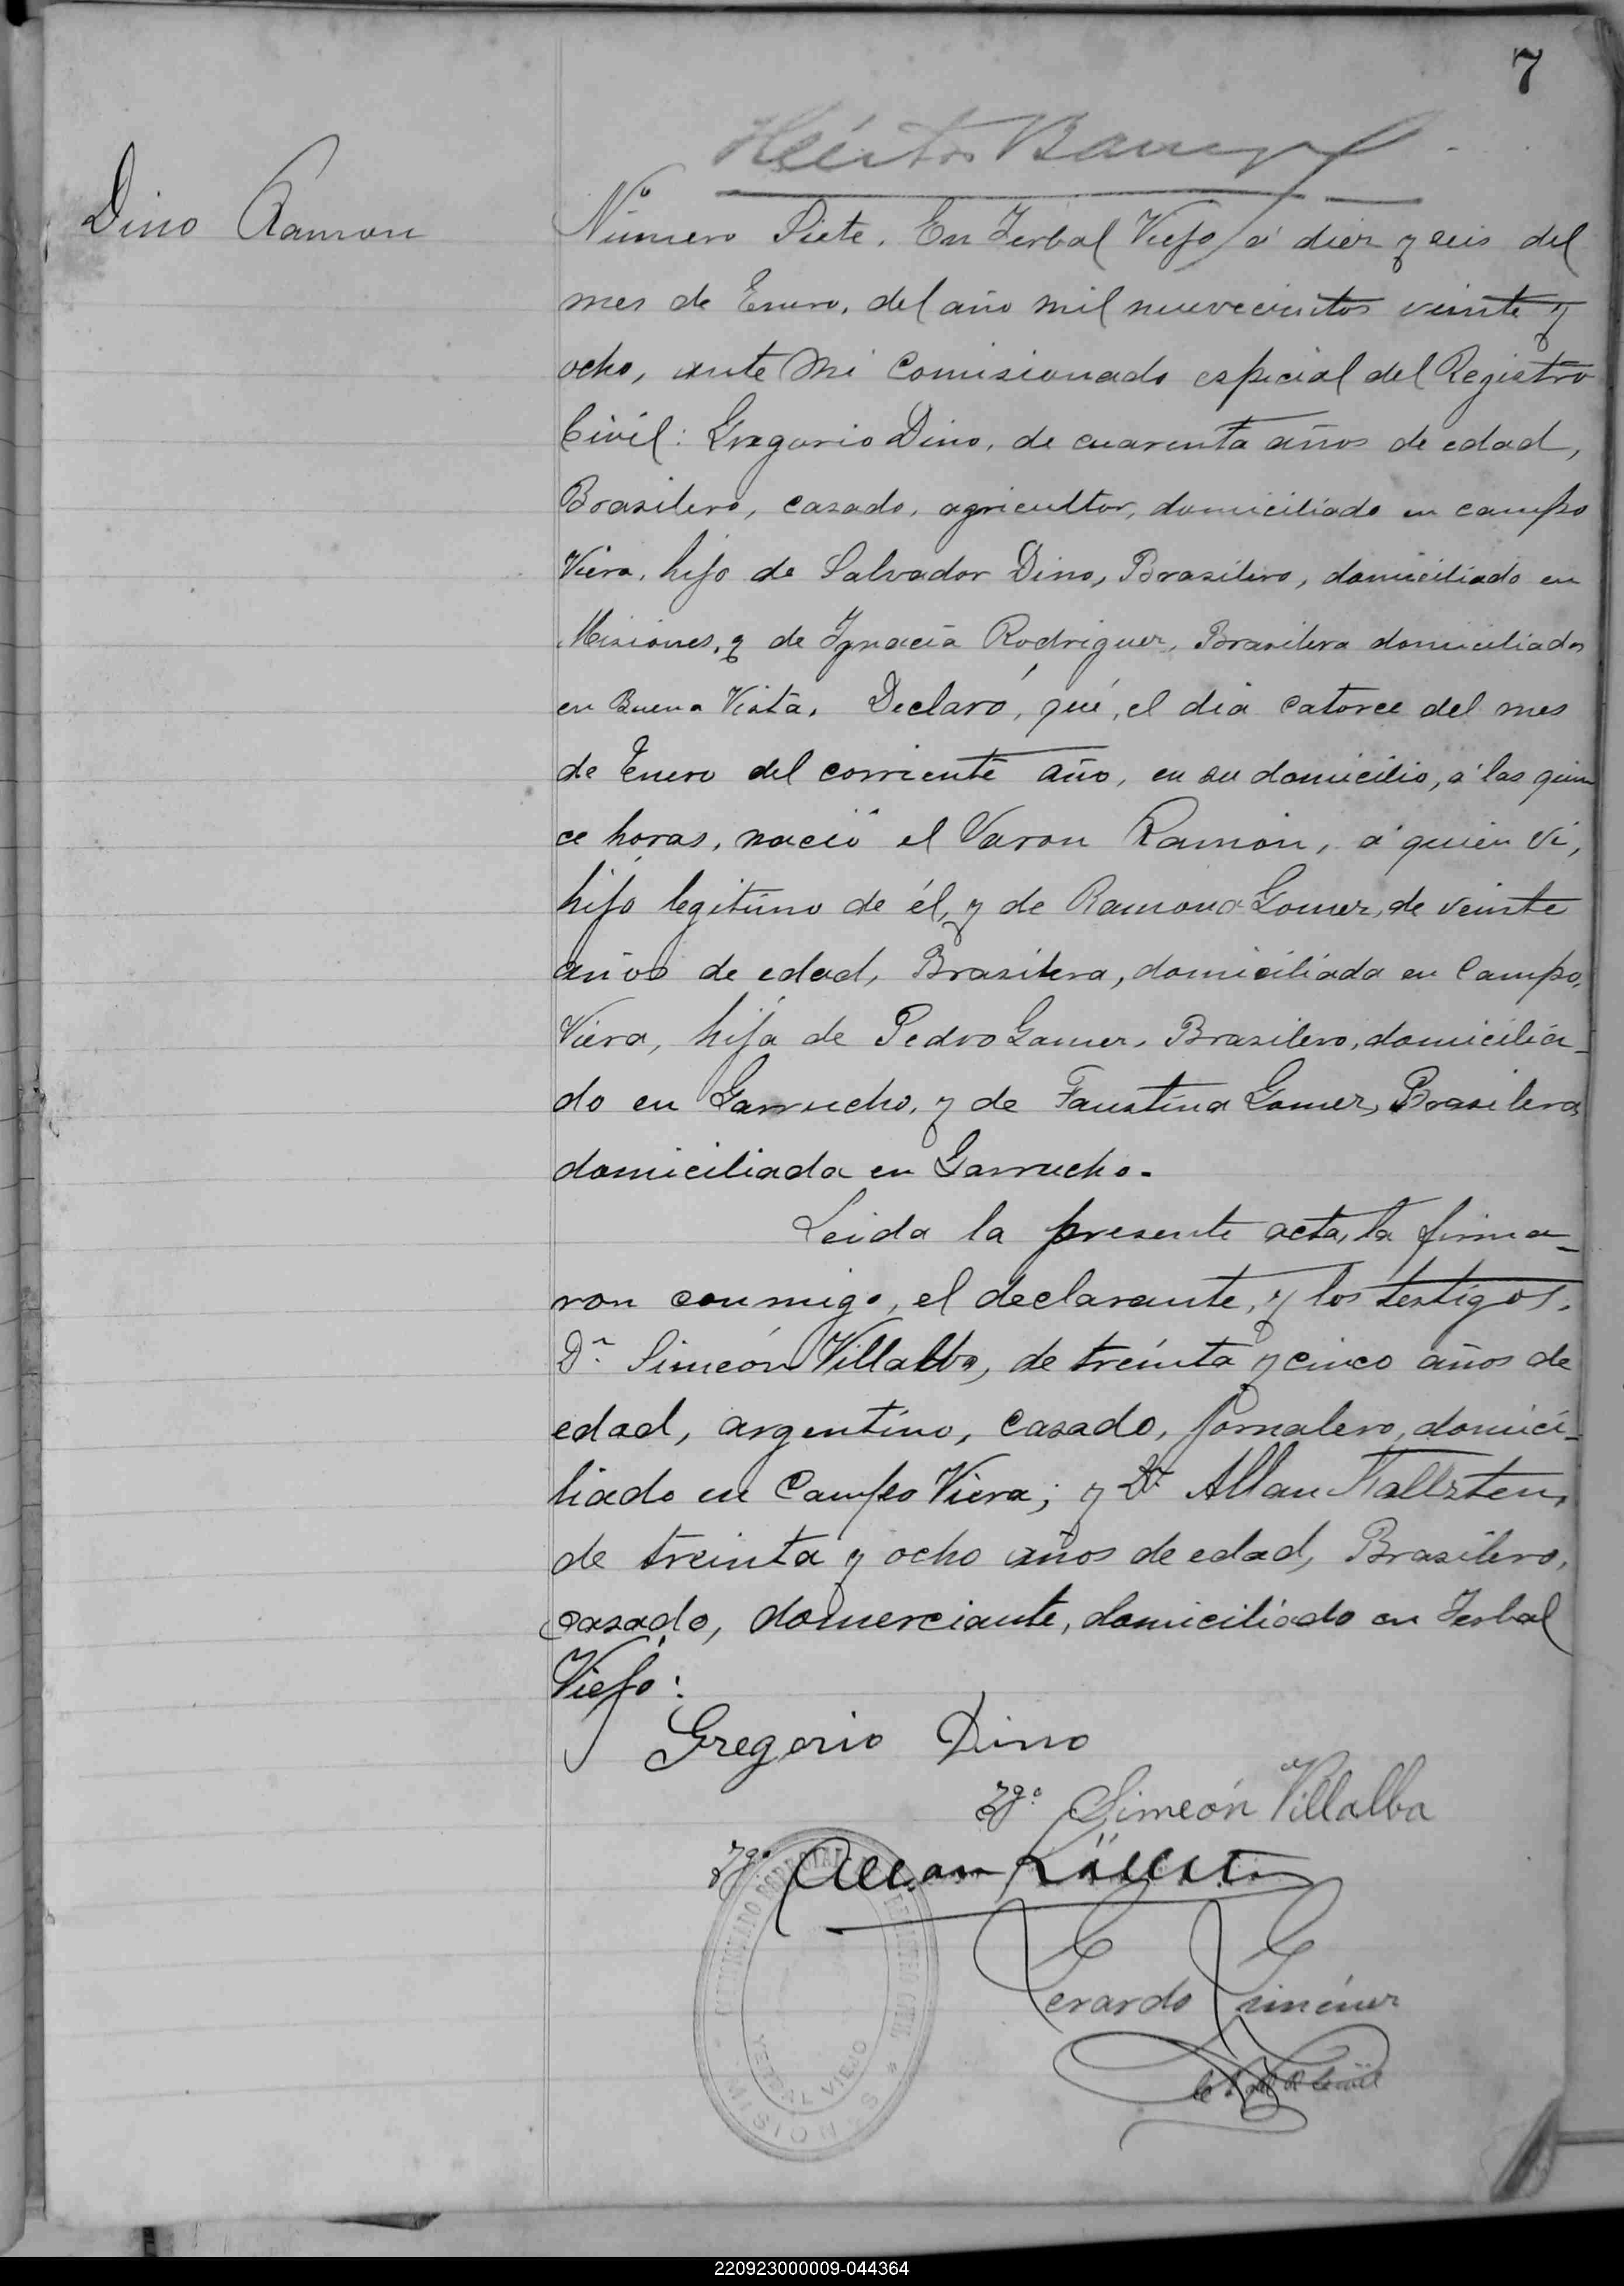 7
Dino Ramon
Número Siete. En Yerbal Viejo á diez y seis del
mes de Enero, del año mil nuevecientos veinte y
ocho, ante mi Comisionado especial del Registro
Civil: Gregorio Dino, de cuarenta años de edad,
Brasilero, casado, agricultor, domiciliado en campo
Viera, hijo de Salvador Dino, Brasilero, domiciliado en
Misiones, y de Ygnacia Rodriguez, Brasilera domiciliados
en Buena Vista. Declaró, qué, el dia catorce del mes
de Enero del corriente año, en su domicilio, á las quin
ce horas, nació el Varon Ramón, á quien vi,
hijo legitimo de él, y de Ramona Gomez, de veinte
años de edad, Brasilera, domiciliada en Campo,
Viera, hija de Pedro Gomez, Brasilero, domicilia-
do en Garrucho, y de Faustina Gomez, Brasilera
domiciliada en Garrucho.
Leida la presente acta, la firma-
ron conmigo, el declarante, y los testigos.
Dn. Simeón Villalba, de treinta y cinco años de
edad, argentino, casado, jornalero, domici-
liado en Campo Viera; y Dn Allan Kallsten,
de treinta y ocho años de edad, Brasilero,
casado, domerciante, domiciliado en Yerbal
Viejo:
Gregorio Dino
Tgo. Simeón Villalba
Tgo. Allan Källsten
Gerardo Giménez
COMISIONADO ESPECIAL DEL REGISTRO CIVIL
YERBAL VIEJO
* MISIONES *
220923000009-044364